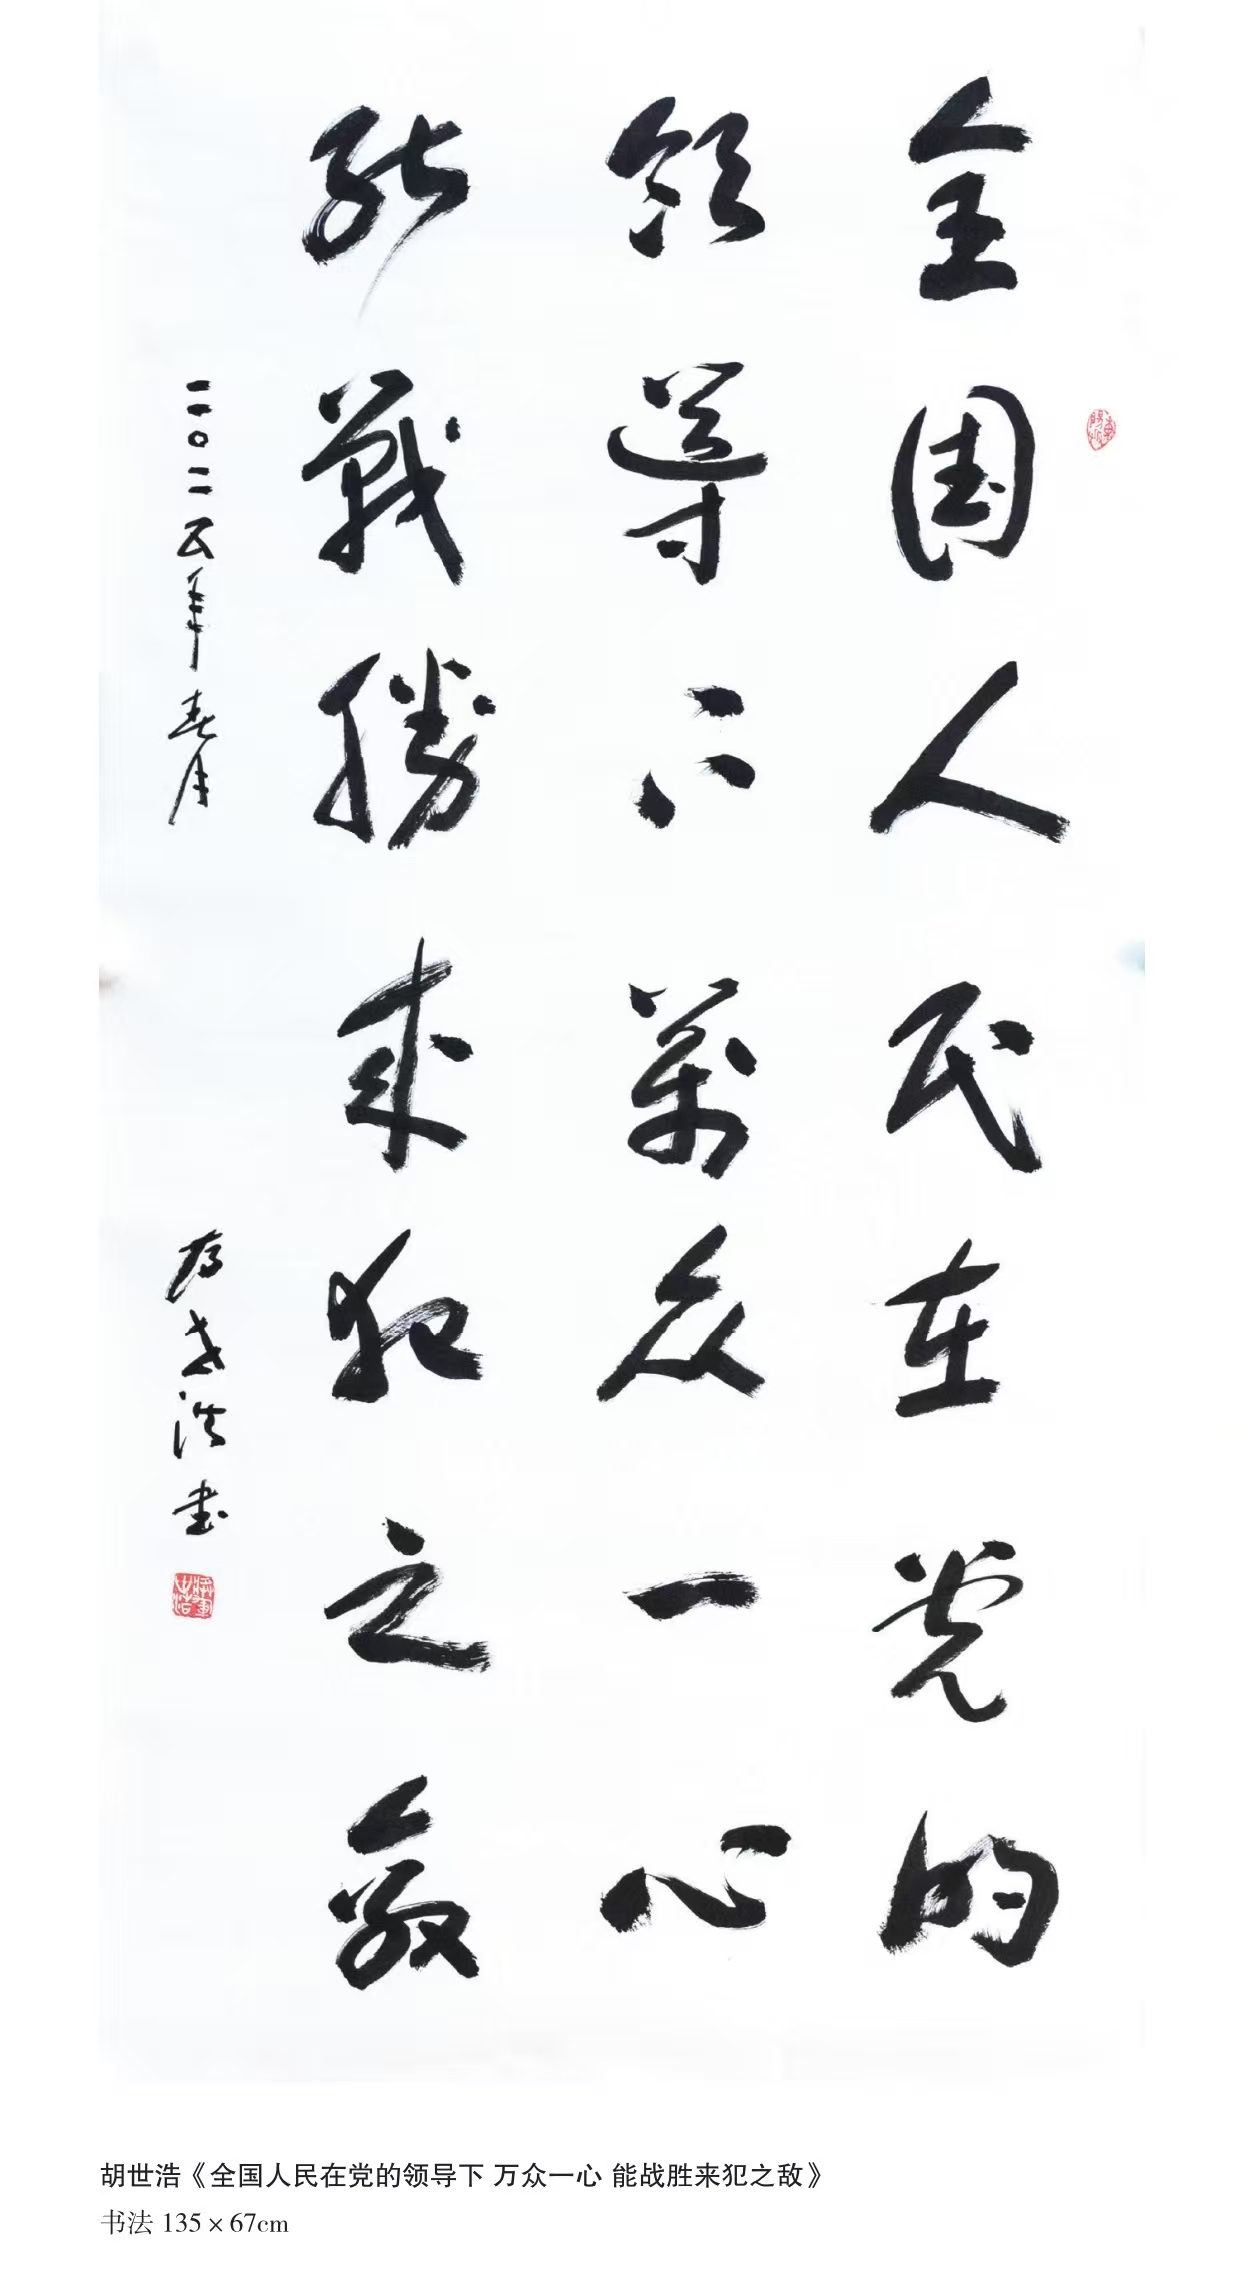 全国人民在党的
领導下萬众一心
能戰勝来犯之敵
二〇二五年春月 胡世浩書
胡世浩《全国人民在党的领导下 万众一心 能战胜来犯之敌》
书法 135×67cm